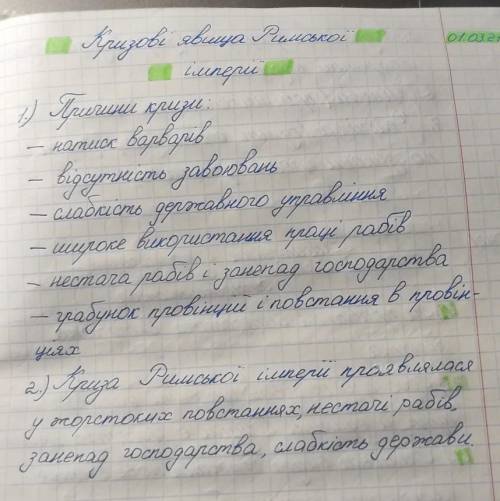 Кризові явища Римської
імперії
1.) Причини кризи:
– натиск варварів
– відсутність завоювань
– слабкість державного управління
– широке використання праці рабів
– нестача рабів і занепад господарства
– грабунок провінцій і повстання в провін-
ціях
2.) Криза Римської імперії проявлялася
у жорстоких повстаннях, нестачі рабів,
занепад господарства, слабкість держави.
01.03.21